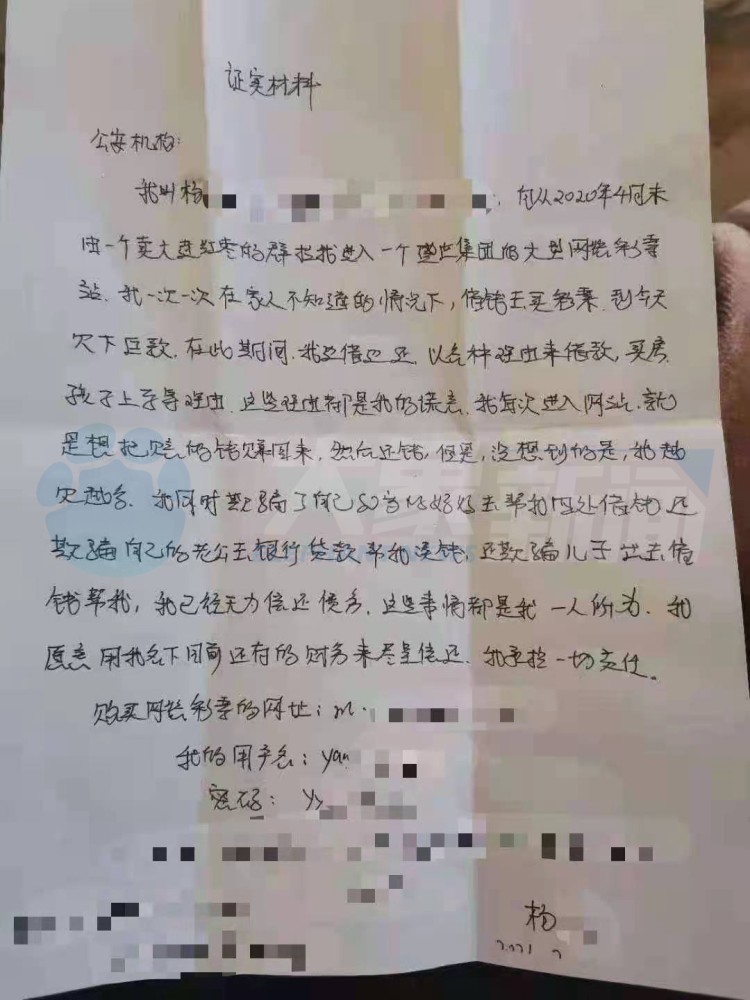 证实材料
公安机构：
我叫杨 自从2020年4月末
由一个卖大连红枣的群拉我进入一个 集团的大型网络彩票
站。我一次一次在家人不知道的情况下，借钱去买彩票。到今天
欠下巨款。在此期间，我边借边还。以各种理由来借款，买房，
孩子上学等理由。这些理由都是我的谎言。我每次进入网站，就
是想把 的钱赚回来，然后还钱，但是，没想到的是，我越
欠越多。我同时欺骗了自己80岁的 去帮我四处借钱。还
欺骗自己的老公去银行贷款帮我还钱，还欺骗儿子出去借
钱帮我，我已经无力偿还债务。这些事情都是我一人所为。我
愿意用我名下目前还有的财务来尽量偿还。我承担一切责任。
购买网络彩票的网址：m.
我的用户名：yan
密码：Yx
杨
2021
大象新闻